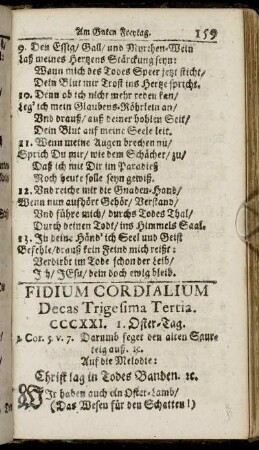 Am Guten Freytag. 159
9. Den Essig/ Gall/ und Myrrhen-Wein
Laß meines Hertzens Stärckung seyn:
Wann mich des Todes Speer jetzt sticht/
Dein Blut mir Trost ins Hertze spricht.
10. Denn ob ich nicht mehr reden kan/
Leg' ich mein Glaubens-Röhrlein an/
Und drauß/ auf deiner hohlen Seit/
Dein Blut auf meine Seele leit.
11. Wenn meine Augen brechen nu/
Sprich Du mir/ wie dem Schächer/ zu/
Daß ich mit Dir im Paradieß
Noch heute solle seyn gewiß.
12. Und reiche mir die Gnaden-Hand/
Wenn nun aufhört Gehör/ Verstand/
Und führe mich/ durchs Todes Thal/
Durch deinen Todt/ ins Himmels Saal.
13. In deine Händ' ich Seel und Geist
Befehle/ drauß kein Feind mich reißt:
Verdirbt im Tode schon der Leib/
Ich/ JEsu/ dein doch ewig bleib.
FIDIUM CORDIALIUM
Decas Trigesima Tertia.
CCCXXI. 1. Oster-Tag.
1. Cor. 5. v. 7. Darumb feget den alten Saur-
teig auß. ꝛc.
Auf die Melodie:
Christ lag in Todes Banden. ꝛc.
Wir haben auch ein Oster-Lamb/
(Das Wesen für den Schatten!)